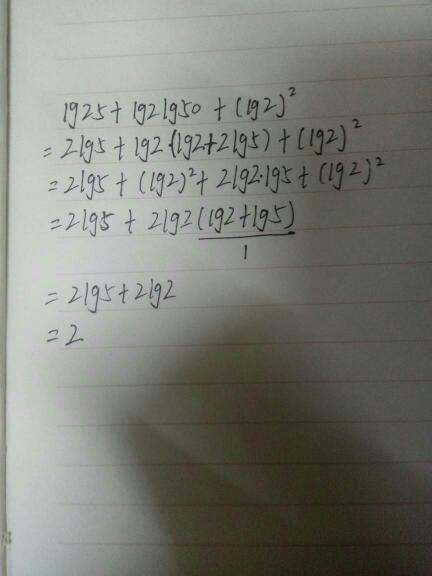 lg25+lg2lg50+(lg2)²
=2lg5+lg2·(lg2+2lg5)+(lg2)²
=2lg5+(lg2)²+2lg2·lg5+(lg2)²
=2lg5+2lg2(lg2+lg5)
1
=2lg5+2lg2
=2